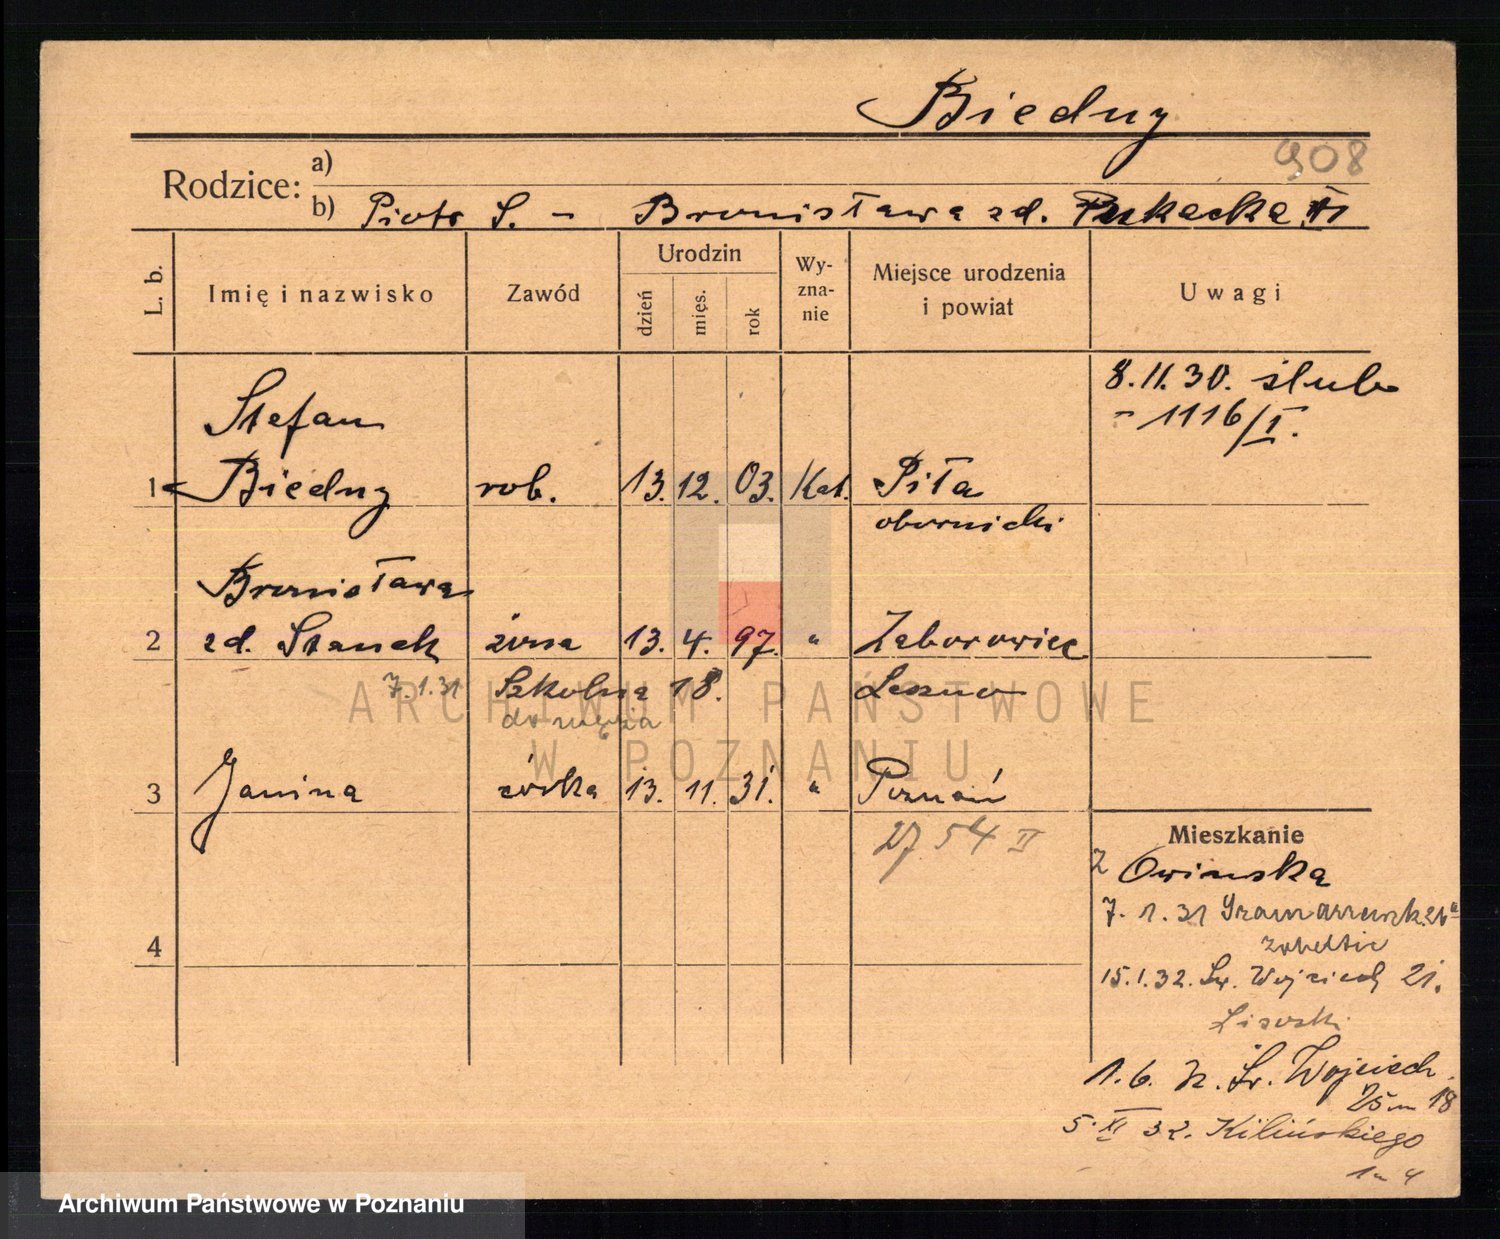 Biedny
908
Rodzice: a)
b) Piotr S. – Bronisława zd.
L. b.
Imię i nazwisko
Zawód
Urodzin
dzień
mięs.
rok
Wy-
zna-
nie
Miejsce urodzenia
i powiat
Uwagi
8.11.30. ślub
– 1116/I.
Stefan
1 Biedny rob. 13. 12. 03. Kat. Piła
obornicki
Bronisława
2 zd. Stanek żona 13. 4. 97. " Zaborowiec
7.1.31 Szkolna 18. Leszno
do męża
3 Janina córka 13. 11. 31. " Poznań
2754 II
Mieszkanie
Z Owinska
7. 1. 31
4
15.1.32. Św. Wojciech 21.
1. 6. 32. Św. Wojciech
25 m 18
5. XI 32. Kilińskiego
1 m 4
ARCHIWUM PAŃSTWOWE
W POZNANIU
Archiwum Państwowe w Poznaniu